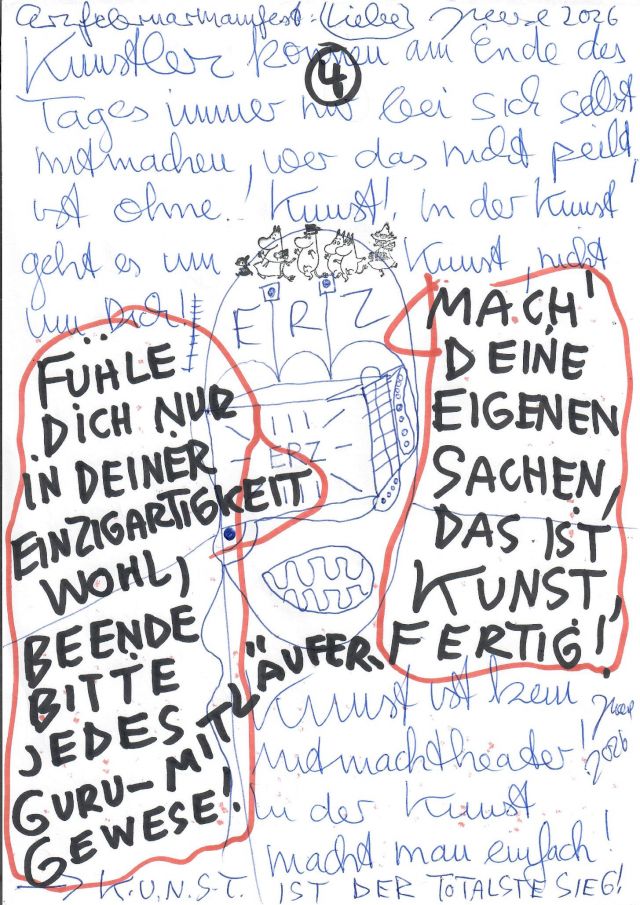 Erzfebruarmanifest: (Liebe) Meese 2026
4
Künstler können am Ende des
Tages immer nur bei sich selbst
mitmachen, wer das nicht peilt,
ist ohne! Kunst! In der Kunst
geht es um Kunst, nicht
um Dich!
ERZ
ERZ
FÜHLE
DICH NUR
IN DEINER
EINZIGARTIGKEIT
WOHL,
BEENDE
BITTE
JEDES
GURU-MITLÄUFER-
GEWESE!
MACH'
DEINE
EIGENEN
SACHEN,
DAS IST
KUNST,
FERTIG!
Kunst ist kein
Mitmachtheater!
In der Kunst
macht man einfach!
Meese
2026
→ K.U.N.S.T. IST DER TOTALSTE SIEG!